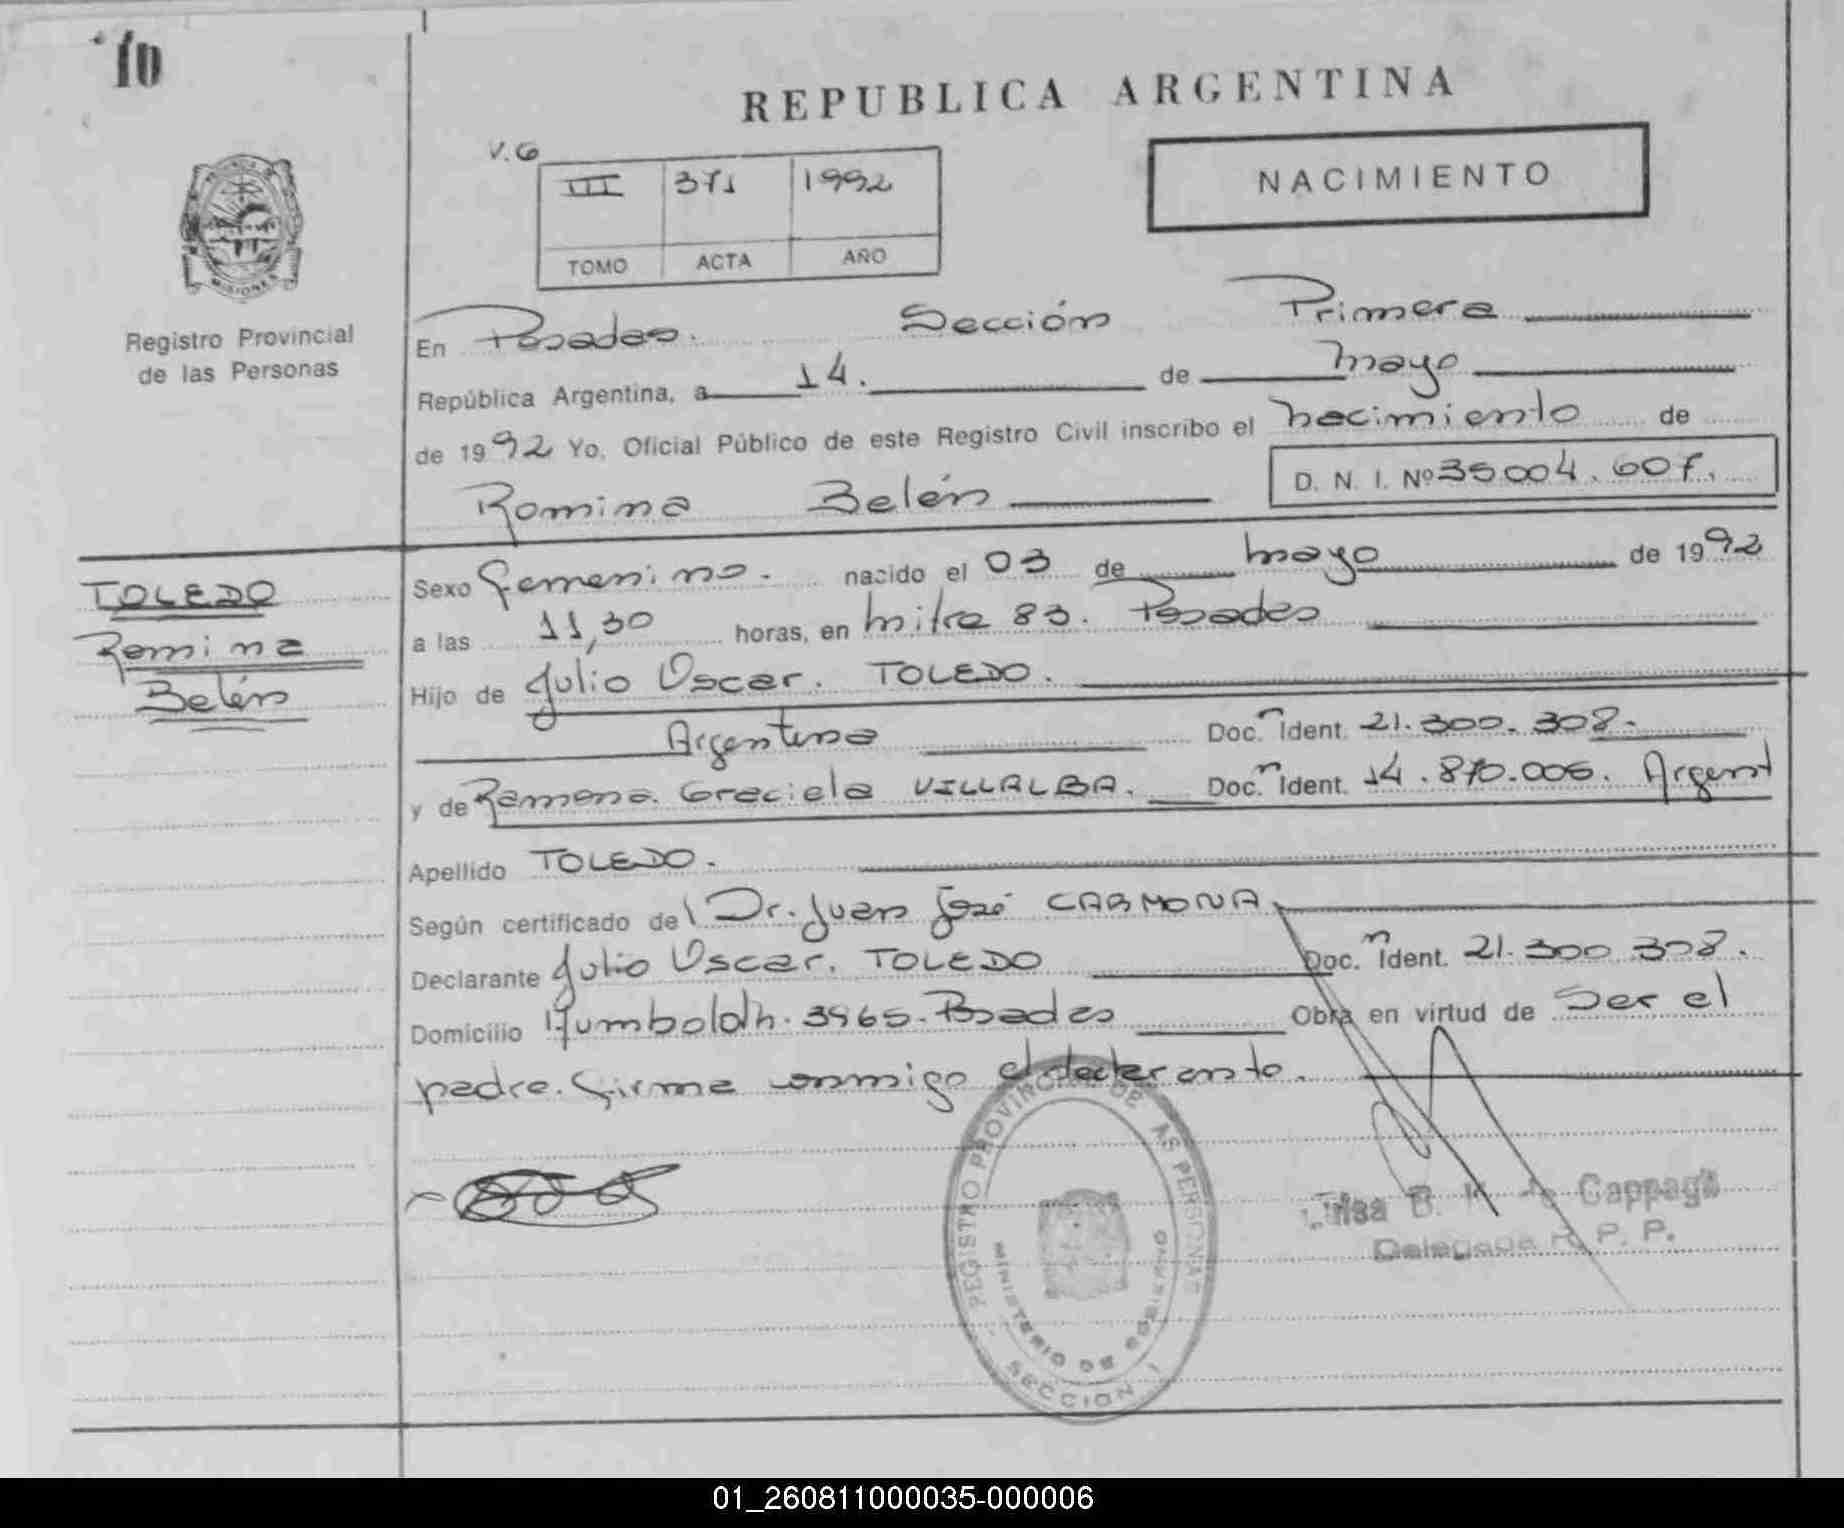 10
REPUBLICA ARGENTINA
V.G
III 371 1992
TOMO ACTA AÑO
NACIMIENTO
MISIONES
Registro Provincial
de las Personas
En Posadas. Sección Primera
República Argentina, a 14. de mayo
de 1992 Yo, Oficial Público de este Registro Civil inscribo el nacimiento de
Romina Belén D. N. I. Nº 35.004.607.
TOLEDO
Romina
Belén
Sexo Femenino. nacido el 03 de mayo de 1992
a las 11,30 horas, en Mitre 83. Posadas
Hijo de Julio Oscar. TOLEDO.
Argentino Doc. Ident. 21.300.308.
y de Ramona Graciela VILLALBA. Doc. Ident. 14.870.006. Argent
Apellido TOLEDO.
Según certificado del Dr. Juan José CARMONA
Declarante Julio Oscar. TOLEDO Doc. Ident. 21.300.308.
Domicilio 3965. Posadas Obra en virtud de Ser el
padre. Firma conmigo el declarante.
REGISTRO PROVINCIAL DE LAS PERSONAS
MINISTERIO DE GOBIERNO
SECCION 1
B. de Cappagli
Delegada R. P. P.
01_260811000035-000006